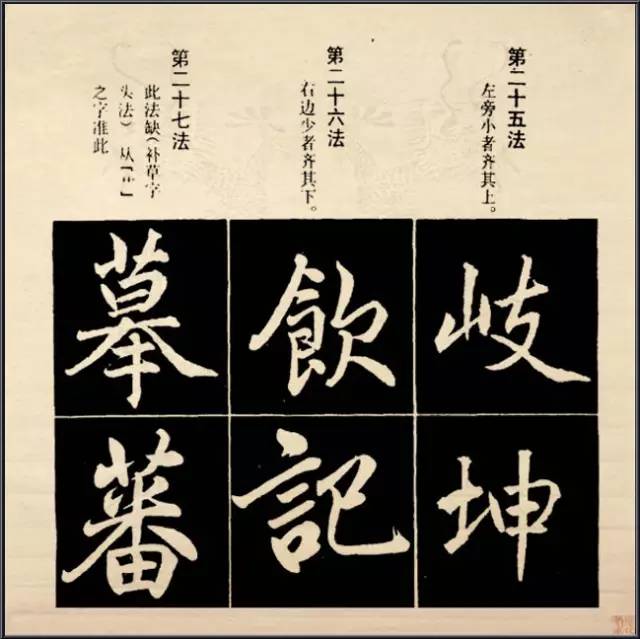 第二十五法
左旁小者齐其上。
岐
坤
第二十六法
右边少者齐其下。
飲
記
第二十七法
此法缺(补草字
头法)从「艹」
之字准此
摹
蕃